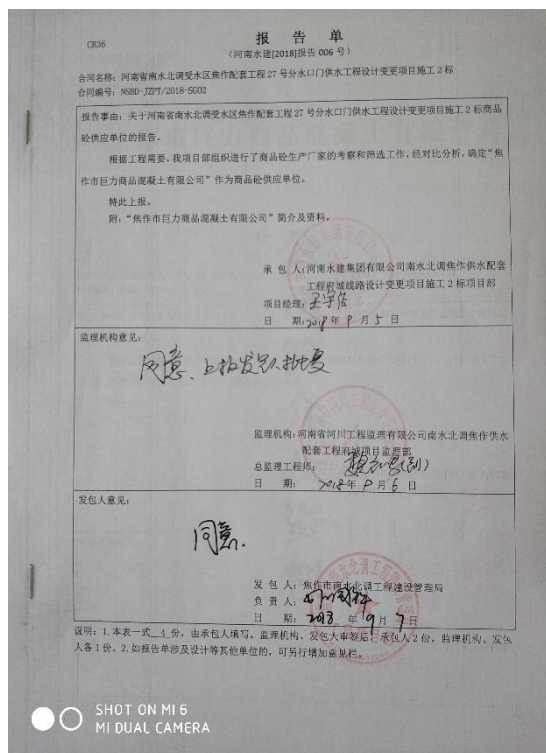 CB36
报 告 单
（河南水建[2018]报告 006 号）
合同名称：河南省南水北调受水区焦作配套工程 27 号分水口门供水工程设计变更项目施工 2 标
合同编号：NSBD-JZPT/2018-SG02
报告事由：关于河南省南水北调受水区焦作配套工程 27 号分水口门供水工程设计变更项目施工 2 标商品
砼供应单位的报告。
根据工程需要，我项目部组织进行了商品砼生产厂家的考察和筛选工作，经对比分析，确定“焦
作市巨力商品混凝土有限公司”作为商品砼供应单位。
特此上报。
附：“焦作市巨力商品混凝土有限公司”简介及资料。
承 包 人：河南水建集团有限公司南水北调焦作供水配套
工程府城线路设计变更项目施工 2 标项目部
项目经理：
日 期：2018 年 9 月 5 日
监理机构意见：
同意、上报发包人批复
监理机构：河南省河川工程监理有限公司南水北调焦作供水
配套工程府城项目监理部
总监理工程师：
日 期：2018 年 9 月 6 日
发包人意见：
同意.
发 包 人：焦作市南水北调工程建设管理局
负 责 人：
日 期：2018 年 9 月 7 日
说明：1.本表一式 4 份，由承包人填写。监理机构、发包人审签后，承包人 2 份，监理机构、发包
人各 1 份。2.如报告单涉及设计等其他单位的，可另行增加意见栏。
SHOT ON MI 6
MI DUAL CAMERA